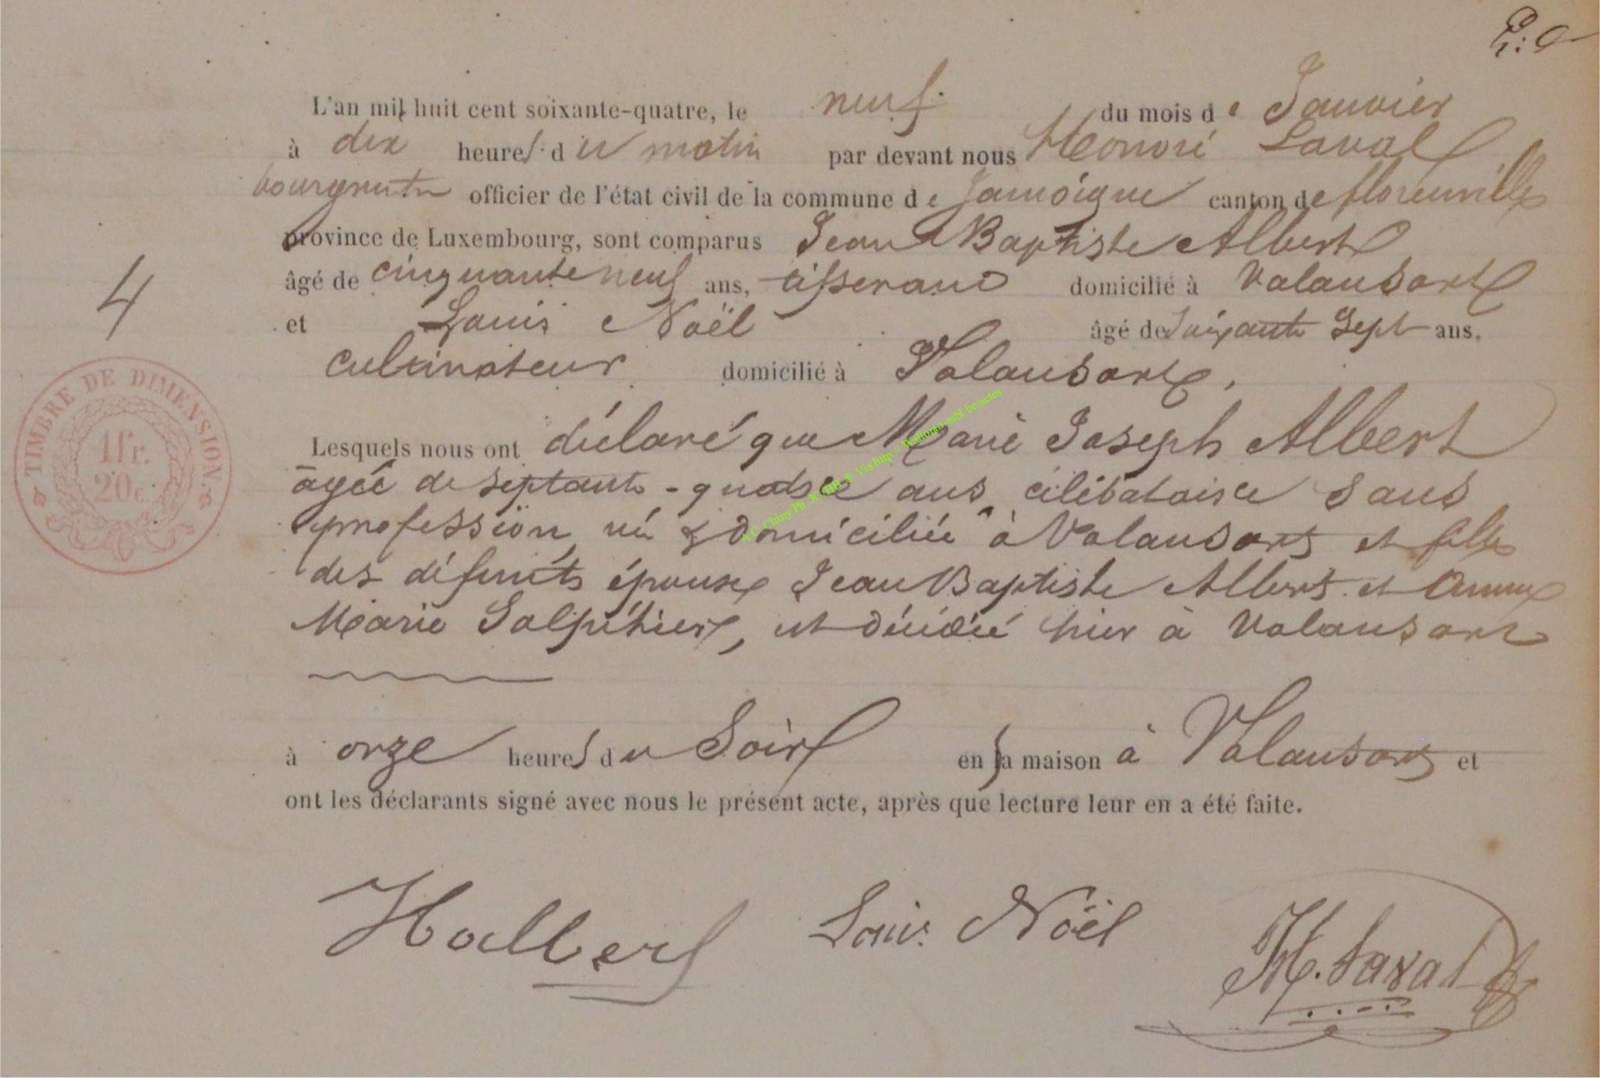 L'an mil huit cent soixante-quatre, le neuf du mois de Janvier
à dix heures du matin par devant nous Honoré Laval
bourgmestre officier de l'état civil de la commune de Jamoigne canton de florenville
province de Luxembourg, sont comparus Jean Baptiste Albert
âgé de cinquante neuf ans, tisserand domicilié à Valansart
et Louis Noël âgé de Soixante Sept ans,
cultivateur domicilié à Valansart,
4
Lesquels nous ont déclaré que Marie Joseph Albert
âgée de septante-quatre ans, célibataire sans
profession, née & domiciliée à Valansart et fille
des défunts époux Jean Baptiste Albert et Anne
Marie Salpétier, est décédée hier à Valansart
TIMBRE DE DIMENSION.
1 fr.
20 c.
à orze heures du Soir en sa maison à Valansart et
ont les déclarants signé avec nous le présent acte, après que lecture leur en a été faite.
Halbert Louis Noël H. Laval